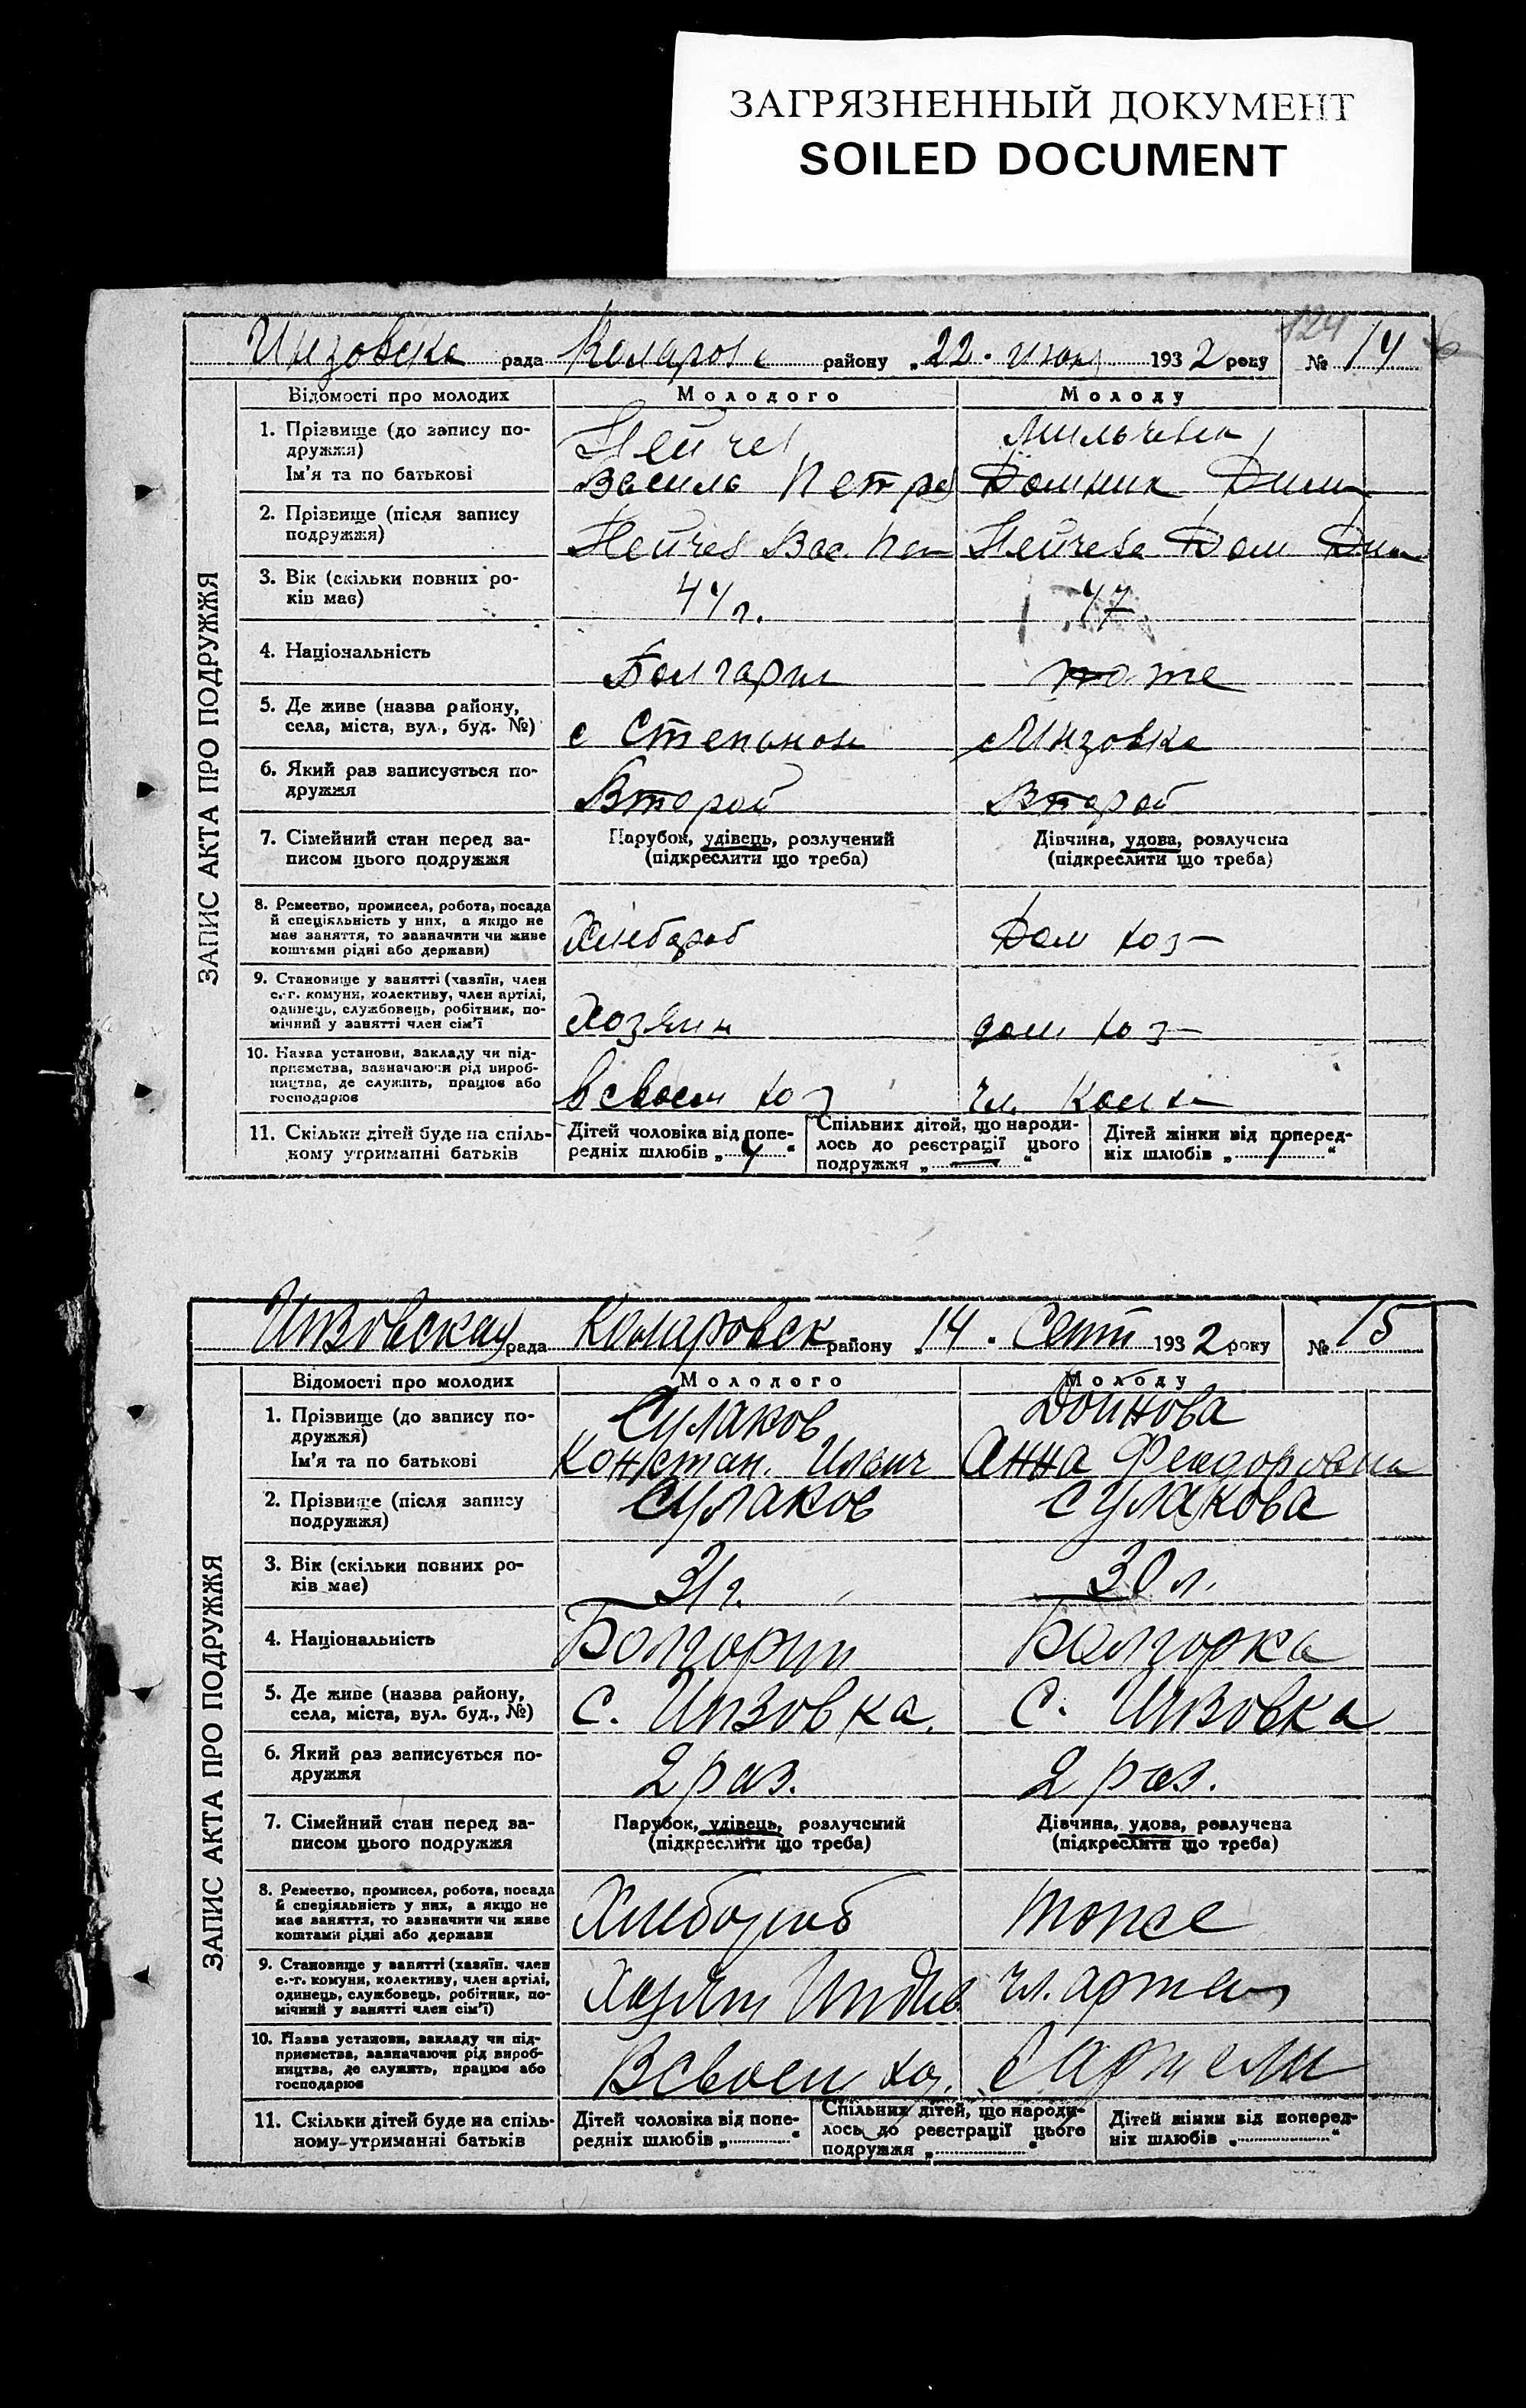 ЗАГРЯЗНЕННЫЙ ДОКУМЕНТ
SOILED DOCUMENT
124
Инзовска рада Коларовс району „22. июня 1932 року № 14
ЗАПИС АКТА ПРО ПОДРУЖЖЯ
Відомості про молодих Молодого Молоду
1. Прізвище (до запису по-
дружжя)
Нейчев Мильчева
Ім'я та по батькові Василь Петро Домник Дими
2. Прізвище (після запису
подружжя)
Нейчев Вас Пет Нейчева Дом Дим
3. Вік (скільки повних ро-
ків має)
44 г. 47
4. Національність Болгарин тоже
5. Де живе (назва району,
села, міста, вул., буд. №)
с Степанов Инзовка
6. Який раз записується по-
дружжя
Второй Второй
7. Сімейний стан перед за-
писом цього подружжя
Парубок, удівець, розлучений
(підкреслити що треба)
Дівчина, удова, розлучена
(підкреслити що треба)
8. Ремество, промисел, робота, посада
й спеціяльність у них, а якщо не
має заняття, то зазначити чи живе
коштами рідні або держави)
Хлебороб Дом хоз
9. Становище у занятті (хазяїн, член
с.-г. комуни, колективу, член артілі,
одинець, службовець, робітник, по-
мічний у занятті член сім'ї
Хозяин дом хоз
10. Назва установи, закладу чи під-
приємства, зазначаючи рід вироб-
ництва, де служить, працює або
господарює
в своем хоз чл.
11. Скільки дітей буде на спіль-
ному утриманні батьків
Дітей чоловіка від попе-
редніх шлюбів „ 4 “
Спільних дітей, що народи-
лось до реєстрації цього
подружжя „ — “
Дітей жінки від поперед-
ніх шлюбів „ 1 “
Инзовская рада Коларовск району „14. Септ 1932 року № 15
ЗАПИС АКТА ПРО ПОДРУЖЖЯ
Відомості про молодих Молодого Молоду
1. Прізвище (до запису по-
дружжя)
Сулаков Дойнова
Ім'я та по батькові Констан. Ильич Анна Феодоровна
2. Прізвище (після запису
подружжя)
Сулаков Сулакова
3. Вік (скільки повних ро-
ків має)
31 г. 30 л.
4. Національність Болгорин Болгорка
5. Де живе (назва району,
села, міста, вул. буд., №)
С. Инзовка. С. Инзовка
6. Який раз записується по-
дружжя
2 раз. 2 раз.
7. Сімейний стан перед за-
писом цього подружжя
Парубок, удівець, розлучений
(підкреслити що треба)
Дівчина, удова, розлучена
(підкреслити що треба)
8. Ремество, промисел, робота, посада
й спеціяльність у них, а якщо не
має заняття, то зазначити чи живе
коштами рідні або держави
Хлебороб тоже
9. Становище у занятті (хазяїн. член
с.-г. комуни, колективу, член артілі,
одинець, службовець, робітник, по-
мічний у занятті член сім'ї)
Хозяин Индив. чл. артели
10. Назва установи, закладу чи під-
приємства, зазначаючи рід вироб-
ництва, де служить, працює або
господарює
В своем хоз. в артели
11. Скільки дітей буде на спіль-
ному утриманні батьків
Дітей чоловіка від попе-
редніх шлюбів „ “
Спільних дітей, що народи-
лось до реєстрації цього
подружжя „ “
Дітей жінки від поперед-
ніх шлюбів „ “